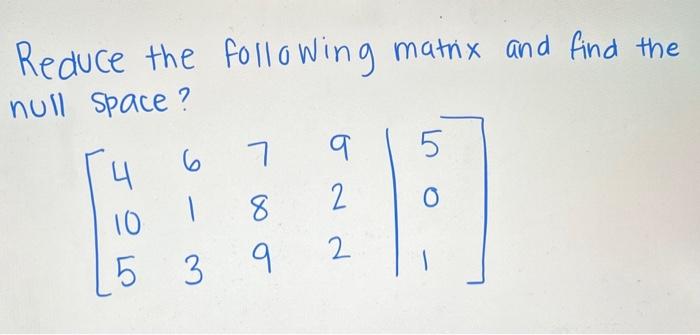 Reduce the following matrix and find the
null space?
4 6 7 9 | 5
10 1 8 2 | 0
5 3 9 2 | 1